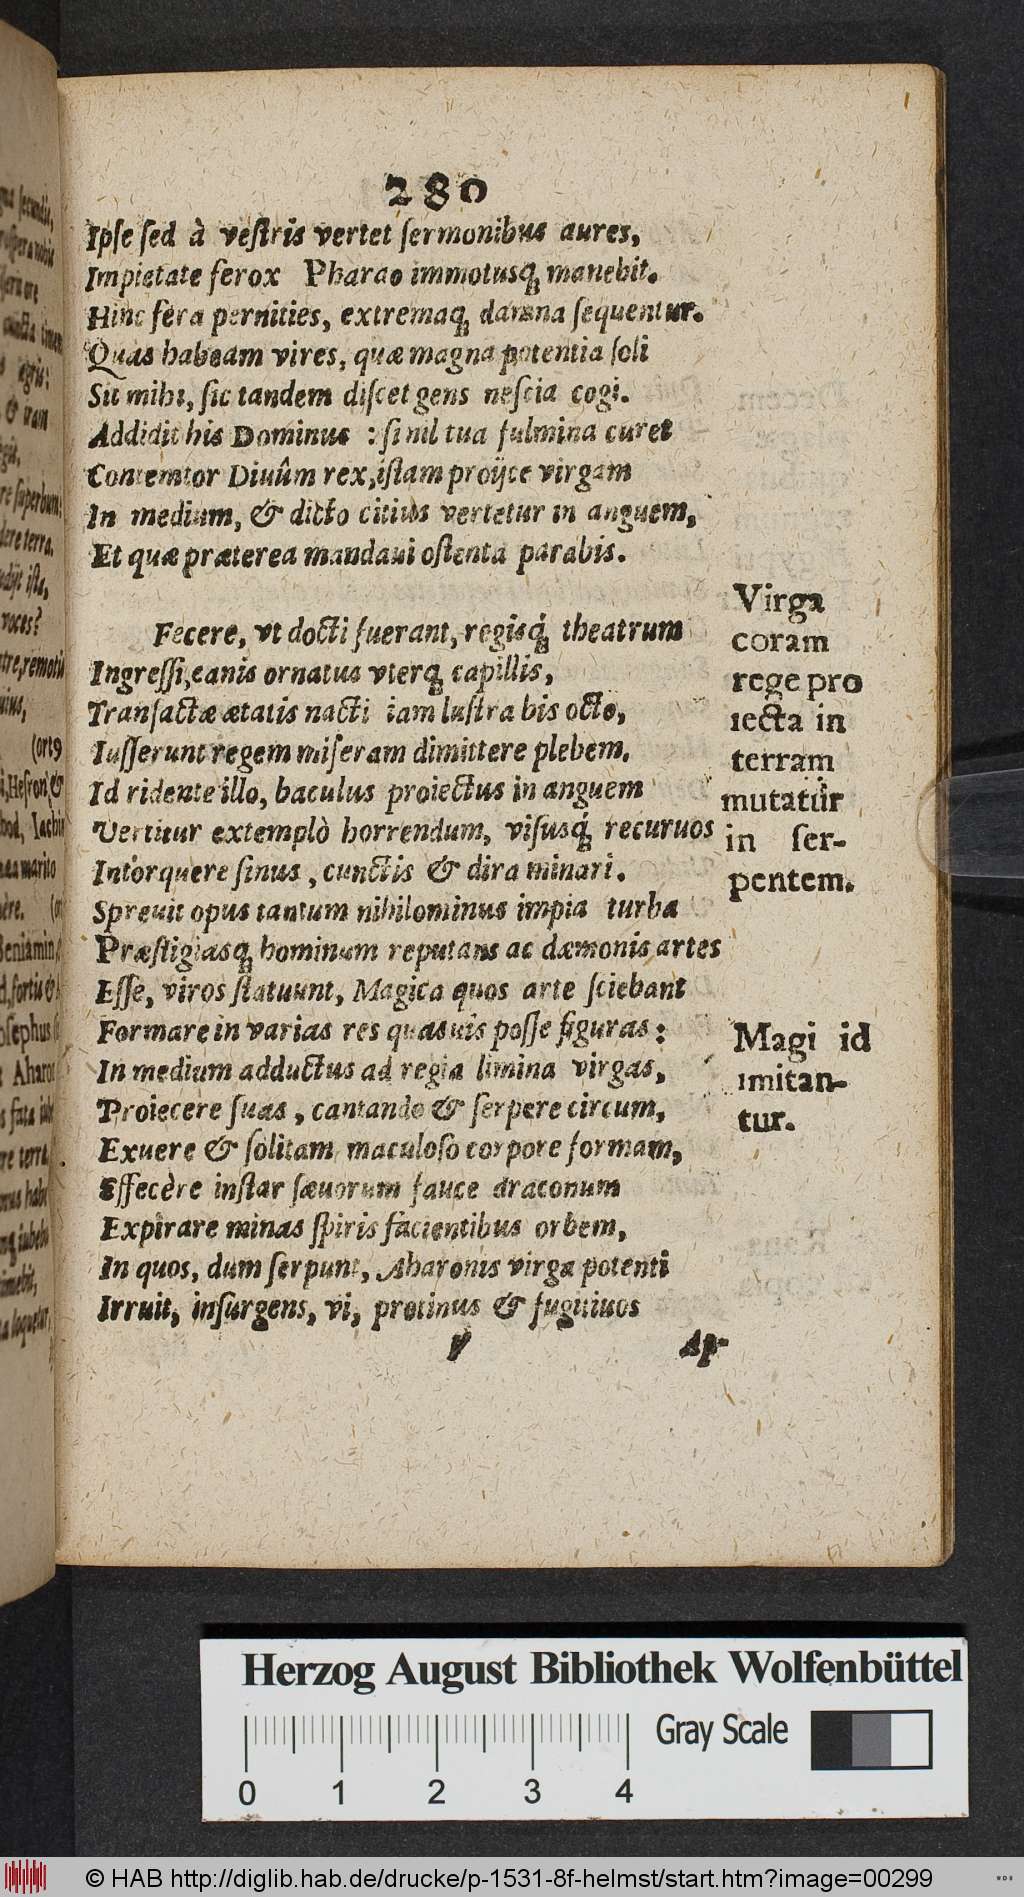 280
Ipſe ſed à veſtris vertet ſermonibus aures,
Impietate ferox Pharao immotusq́; manebit.
Hinc fera pernities, extremaq́; damna ſequentur.
Quas habeam vires, quæ magna potentia ſoli
Sit mihi, ſic tandem diſcet gens neſcia cogi.
Addidit his Dominus : ſi nil tua fulmina curet
Contemtor Diuûm rex, iſtam proijce virgam
In medium, & dicto citius vertetur in anguem,
Et quæ præterea mandaui oſtenta parabis.
Fecere, vt docti fuerant, regisq́; theatrum
Ingreſſi, canis ornatus vterq́; capillis,
Tranſactæ ætatis nacti iam luſtra bis octo,
Iuſſerunt regem miſeram dimittere plebem.
Id ridente illo, baculus proiectus in anguem
Vertitur extemplò horrendum, viſusq́; recuruos
Intorquere ſinus, cunctis & dira minari.
Spreuit opus tantum nihilominus impia turba
Præſtigiasq́; hominum reputans ac dæmonis artes
Eſſe, viros ſtatuunt, Magica quos arte ſciebant
Formare in varias res quasuis poſſe figuras:
In medium adductus ad regia limina virgas,
Proiecere ſuas, cantando & ſerpere circum,
Exuere & ſolitam maculoſo corpore formam,
Effecère inſtar ſæuorum fauce draconum
Expirare minas ſpiris facientibus orbem,
In quos, dum ſerpunt, Aharonis virga potenti
Irruit, inſurgens, vi, protinus & fugitiuos
V Ap-
Virga
coram
rege pro
iecta in
terram
mutatur
in ſer-
pentem.
Magi id
imitan-
tur.
Herzog August Bibliothek Wolfenbüttel
Gray Scale
0 1 2 3 4
© HAB http://diglib.hab.de/drucke/p-1531-8f-helmst/start.htm?image=00299